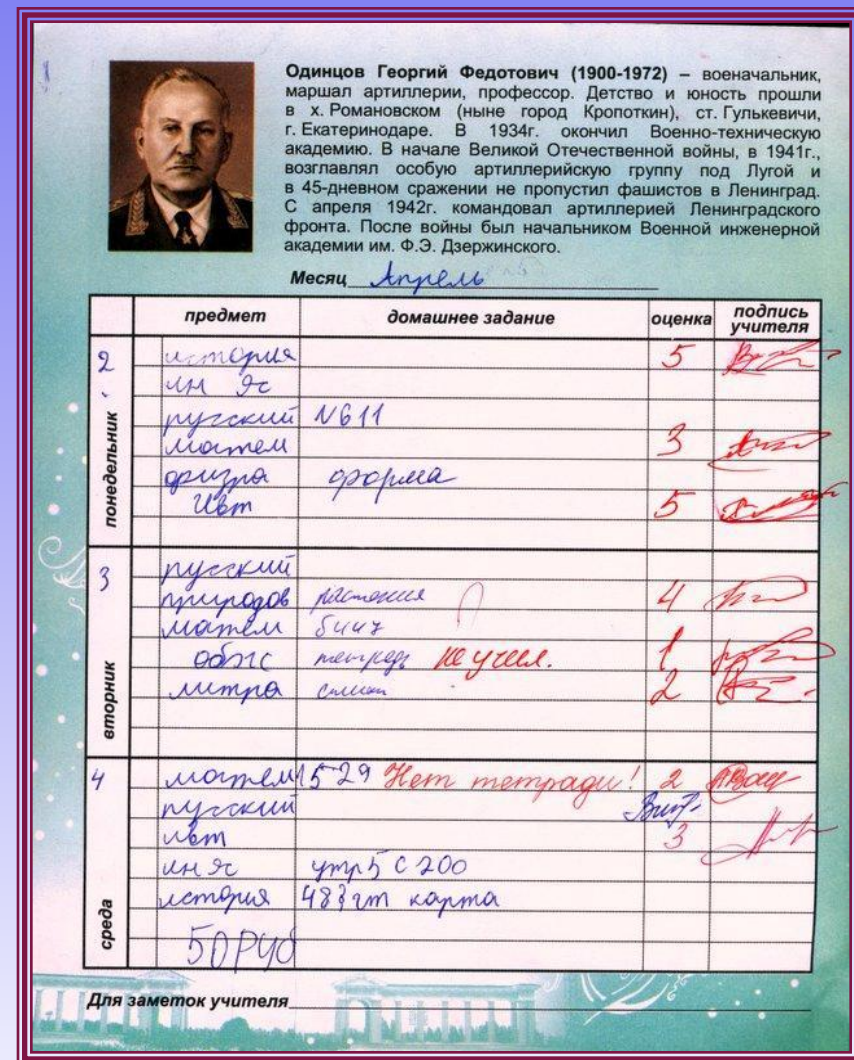 Одинцов Георгий Федотович (1900-1972) – военачальник,
маршал артиллерии, профессор. Детство и юность прошли
в х. Романовском (ныне город Кропоткин), ст. Гулькевичи,
г. Екатеринодаре. В 1934г. окончил Военно-техническую
академию. В начале Великой Отечественной войны, в 1941г.,
возглавлял особую артиллерийскую группу под Лугой и
в 45-дневном сражении не пропустил фашистов в Ленинград.
С апреля 1942г. командовал артиллерией Ленинградского
фронта. После войны был начальником Военной инженерной
академии им. Ф.Э. Дзержинского.
Месяц Апрель
предмет домашнее задание оценка подпись учителя
понедельник
2 история 5
ин яз
русский N611
матем 3
физра форма
Ивт 5
вторник
3 русский
природов растения 4
матем
обж тетрадь не учил. 1
литра 2
среда
4 матем 529 Нет тетради! 2
русский
ивт 3
ин яз упр 5 С 200
история 48 карта
50 РУб
Для заметок учителя